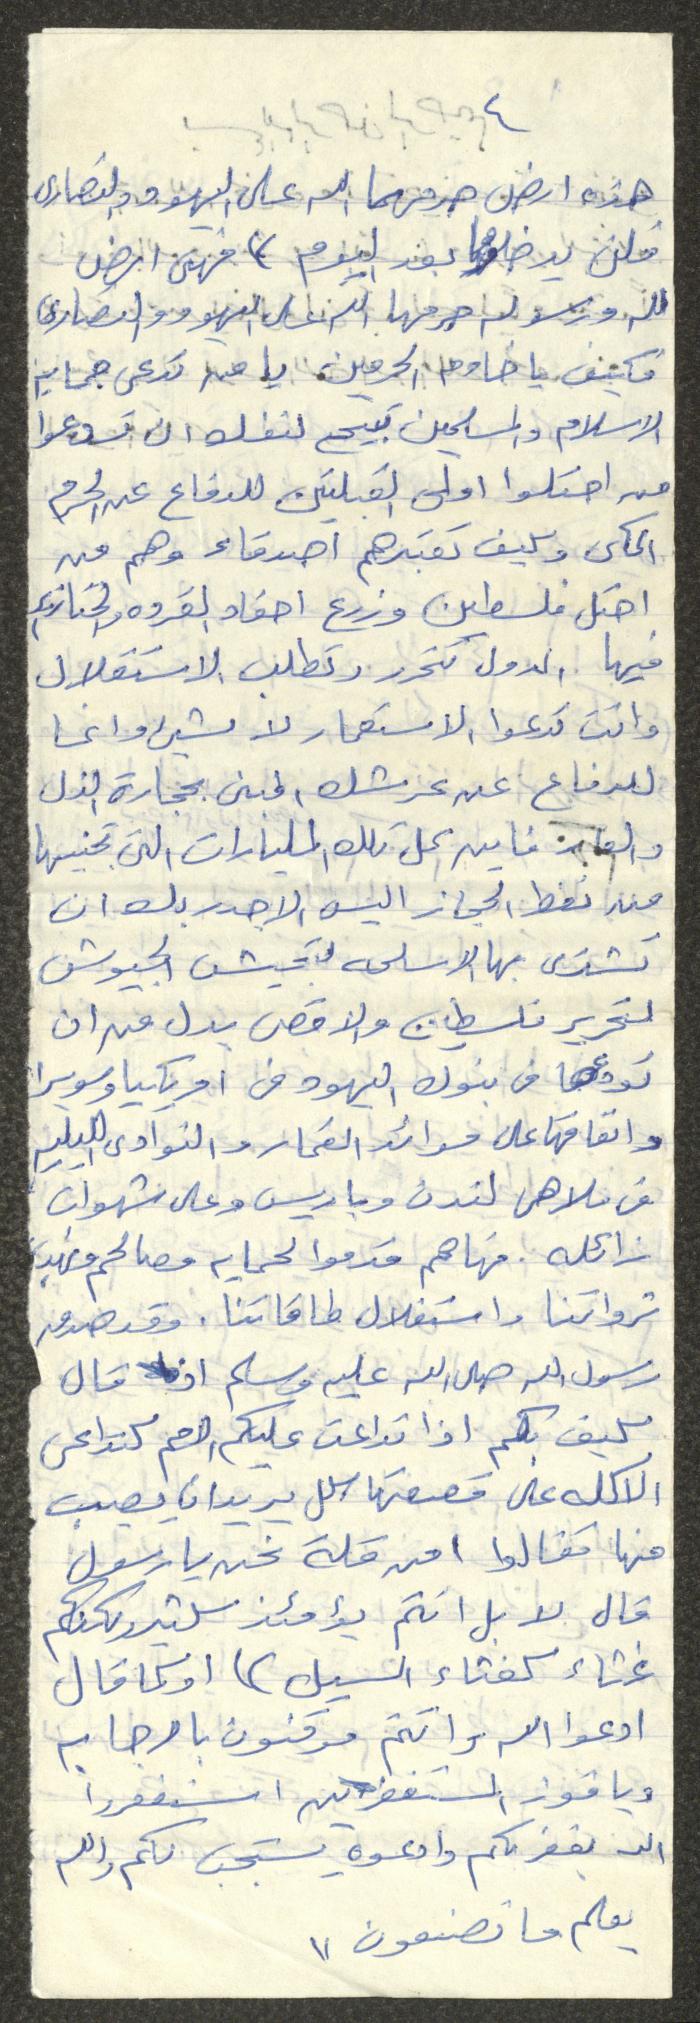 ٤
هذه ارض حرمها الله على اليهود والنصارى
فلن يدخلوها بعد اليوم )) فهى ارض
لله ورسوله حرمها الله على اليهود والنصارى
فكيف يا خادم الحرمين يا من تدعى حماية
الاسلام والمسلمين تبيح لنفسك ان تستدعوا
من احتلوا اولى القبلتين للدفاع عن الحرم
المكى وكيف تعتبرهم اصدقاء وهم من
احتل فلسطين وزرع احفاد القرده والخنازير
فيها الدول تتحرر وتطلب الاستقلال
وانت تدعوا الاستعمار لا لشىء وانما
للدفاع عن عرشك المبنى بحجارة الذل
والعار فاين كل تلك المليارات التى تجنيها
من نفط الحجاز اليس الاجدر بك ان
تشترى بها الاسلحه لتجيش الجيوش
لتحرير فلسطين والاقصى بدل من ان
تودعها فى بنوك اليهود فى امريكيا وسويسرا
وانفاقها على موائد القمار والنوادى الليليه
فى ملاهى لندن وباريس وعلى شهوات
زائله . فها هم قدموا لحمايه مصالحهم ونهب
ثرواتنا واستغلال طاقاتنا . وقد صدق
رسول الله صلى الله عليه وسلم اذ قال
كيف بكم اذا تداعت عليكم الامم كتداعى
الاكله على قصعتها كل يريد ان يصيب
منها فقالوا امن قلة نحن يا رسول
قال لا بل انتم يؤمئذ كثير ولكنكم
غثاء كغثاء السيل )) او كما قال
ادعوا الله وانتم موقنون بالاجابه
ويا فوز المستغفرين استغفروا
الله يغفر لكم وادعوه يستجب لكم والله
يعلم ما تصنعون //